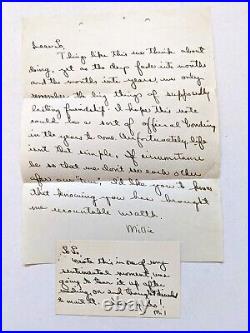 Dear L,
Things like this we think about
doing, yet as the days fade into months
and the months into years we only
remember the big things of supposedly
lasting friendship. I hope this note
could be a sort of official bonding
in the years to come. Unfortunately life
isn't this simple. If circumstances
be so that we don't see each other
after our " " I'd like you to know
that knowing you has brought
me uncountable wealth.
Millie
L.L.
Wrote this in one of my
sentimental moments, was
going to tear it up after
and thought decided
M.